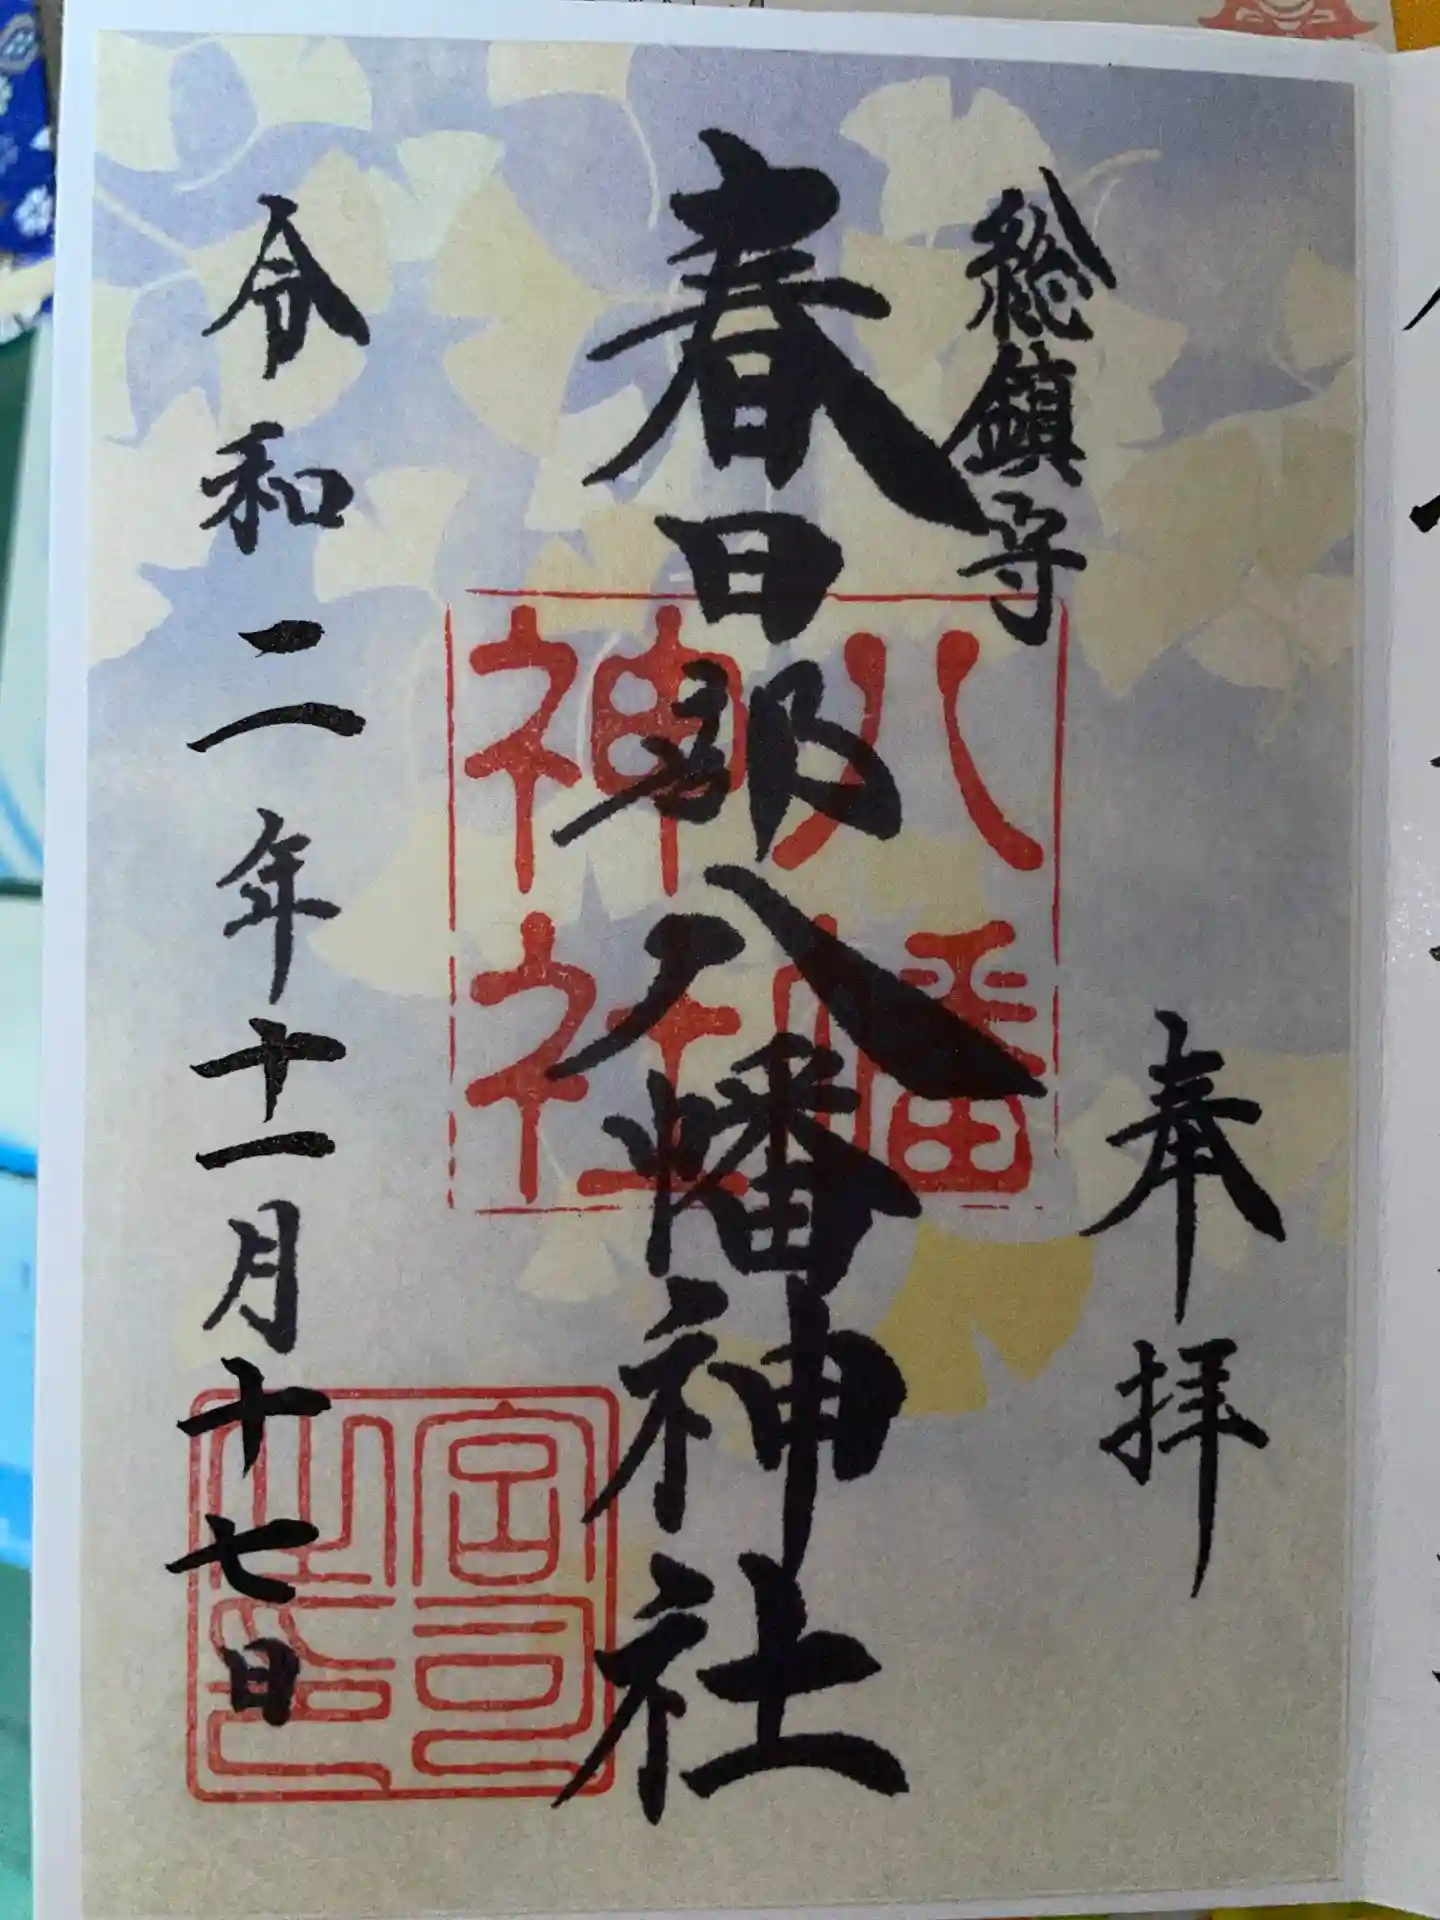 奉拝
総鎮守
春日部八幡神社
令和二年十一月十七日
八幡
神社
宮司
之印